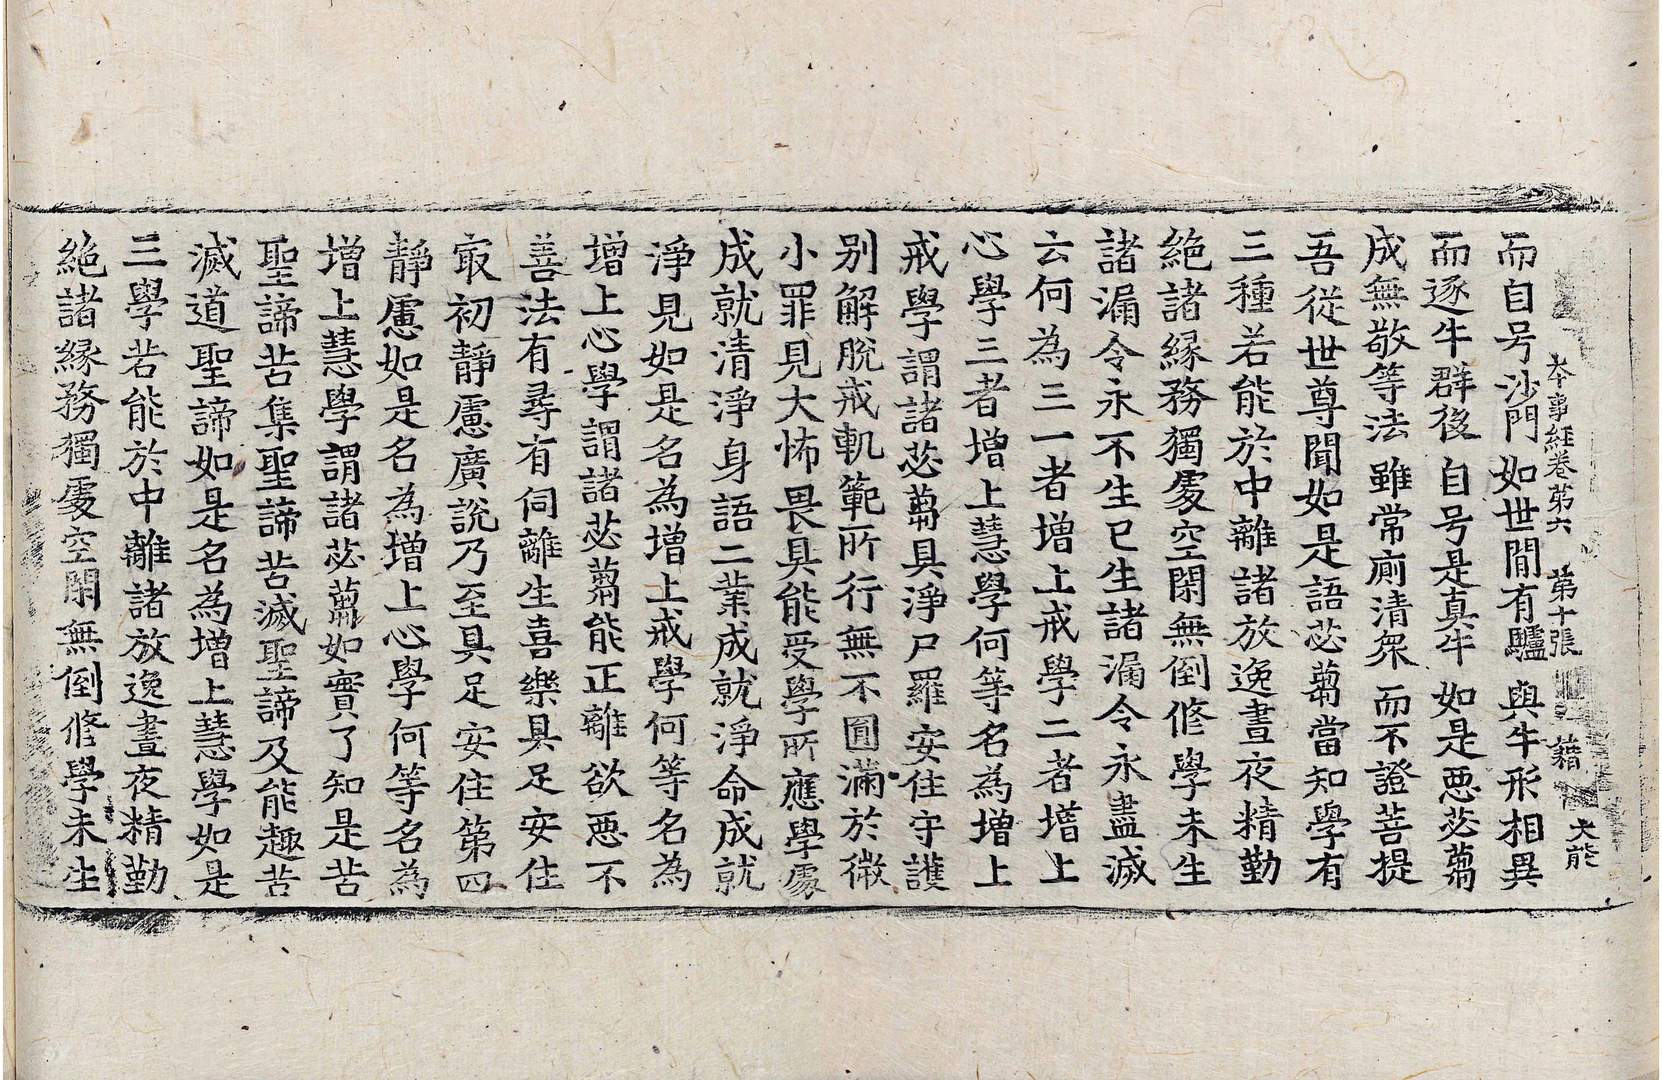 本事經卷第六 第十張 藉 大能
而自号沙門如世閒有驢與牛形相異
而逐牛群後自号是真牛如是惡苾蒭
成無敬等法雖常廁清衆而不證菩提
吾從世尊聞如是語苾蒭當知學有
三種若能於中離諸放逸晝夜精勤
絶諸縁務獨處空閑無倒修學未生
諸漏令永不生已生諸漏令永盡滅
云何為三一者增上戒學二者增上
心學三者增上慧學何等名為增上
戒學謂諸苾蒭具淨尸羅安住守護
别解脫戒軌範所行無不圓滿於微
小罪見大怖畏具能受學所應學處
成就清淨身語二業成就淨命成就
淨見如是名為增上戒學何等名為
增上心學謂諸苾蒭能正離欲惡不
善法有尋有伺離生喜樂具足安住
㝡初靜慮廣說乃至具足安住第四
靜慮如是名為增上心學何等名為
增上慧學謂諸苾蒭如實了知是苦
聖諦苦集聖諦苦滅聖諦及能趣苦
滅道聖諦如是名為增上慧學如是
三學若能於中離諸放逸晝夜精勤
絶諸縁務獨處空閑無倒修學未生